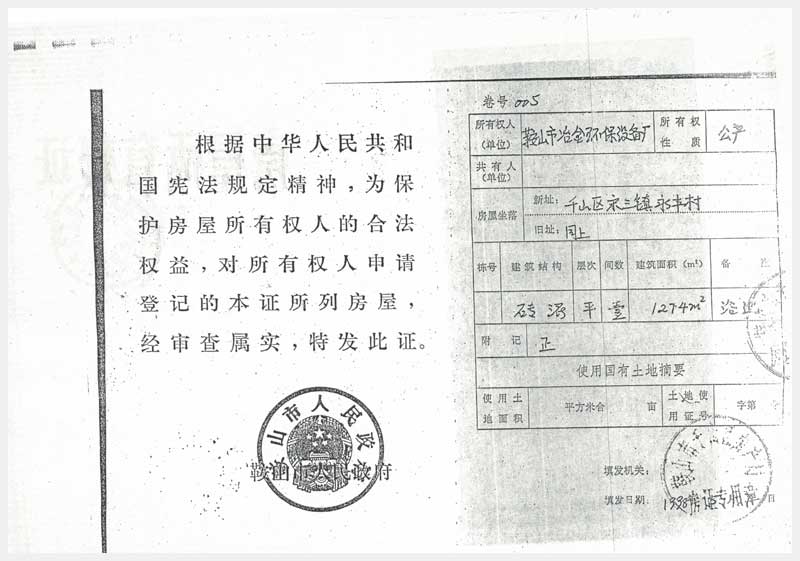 根据中华人民共和
国宪法规定精神，为保
护房屋所有权人的合法
权益，对所有权人申请
登记的本证所列房屋，
经审查属实，特发此证。
鞍山市人民政府
鞍山市人民政府
卷号 005
所有权人(单位) 鞍山市冶金环保设备厂 所有权性质 公产
共有人(单位)
房屋坐落 新址：千山区宋三镇永丰村
旧址：同上
栋号 建筑结构 层次 间数 建筑面积(m²) 备
砖混 平 壹 1274m²
附记 正
使用国有土地摘要
使用土地面积 平方米合 亩 土地使用证号 字第
填发机关：
填发日期： 1998 日
房证专用